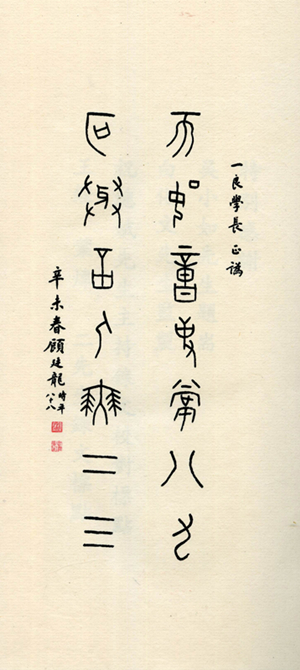 一良學長正譌
不如意事常八九
可與言人無二三
辛未春顧廷龍時年八十八